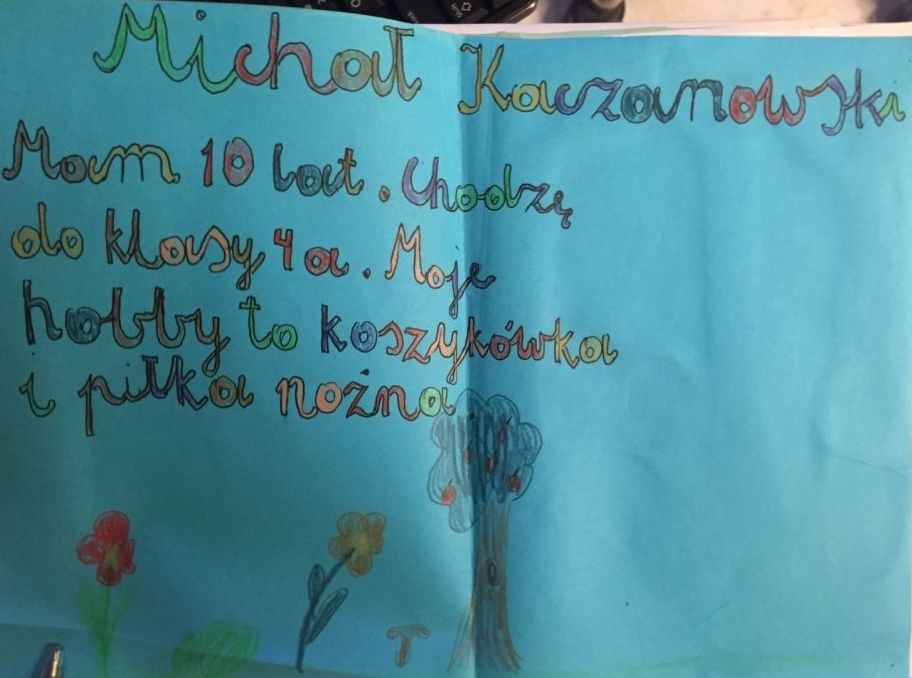 Michał Kaczanowski
Mam 10 lat. Chodzę
do klasy 4a. Moje
hobby to koszykówka
i piłka nożna